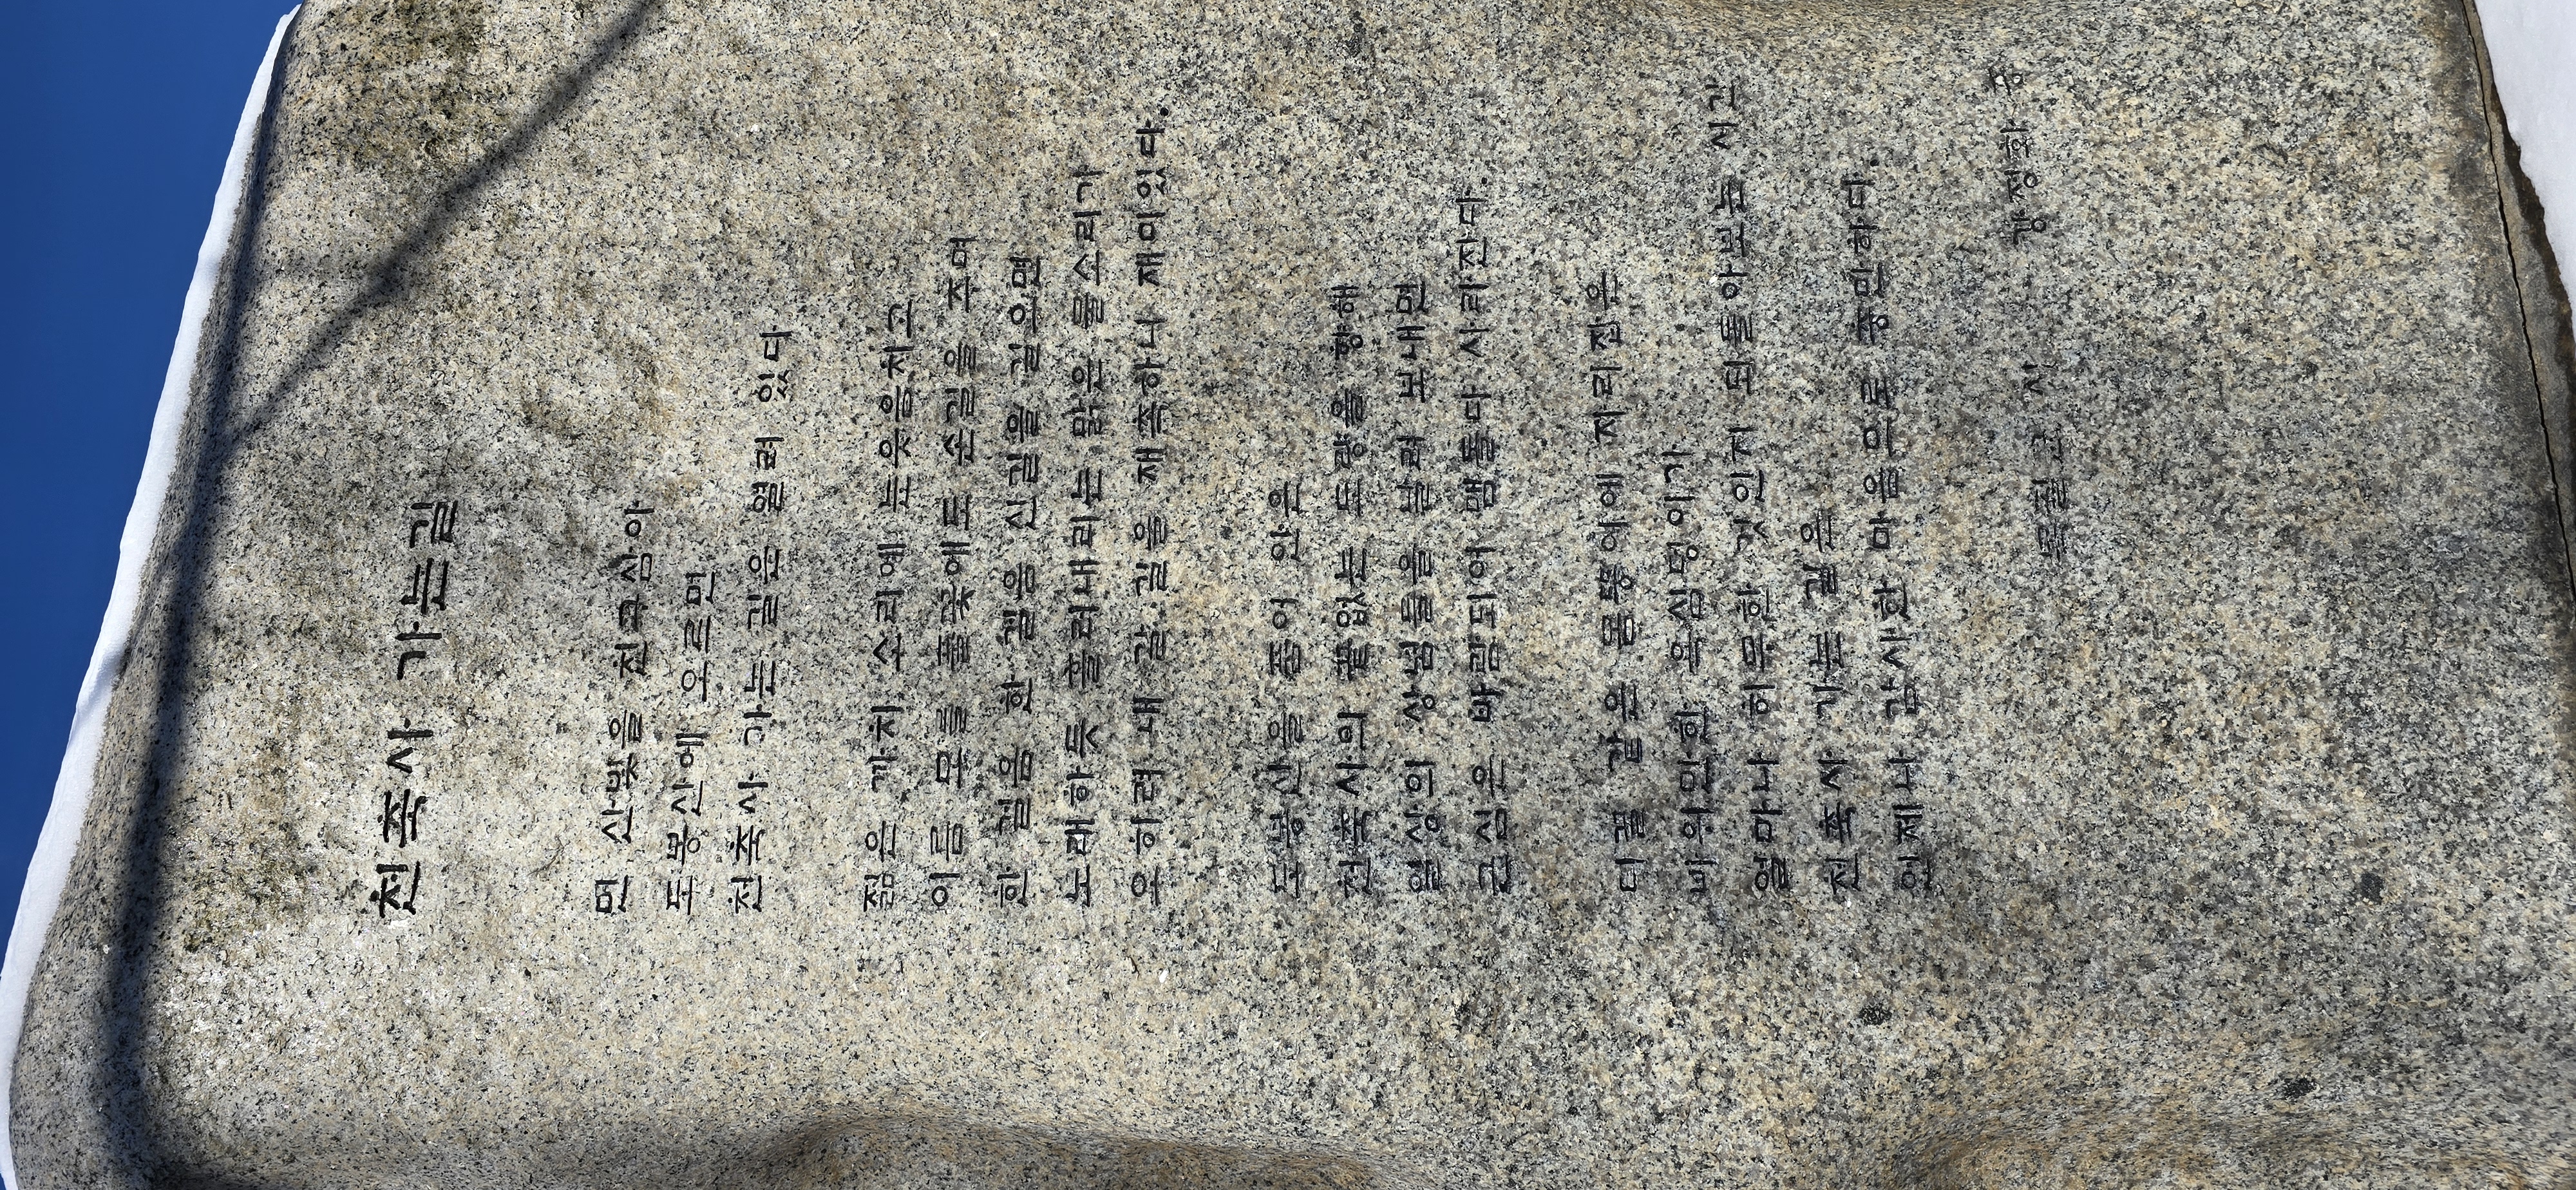 천축사 가는길
먼 산빛을 친구삼아
도봉산에 오르면
천축사 가는 길은 열려 있다
젊은 까치 소리에 눈웃음치고
이름 모를 풀꽃에도 손길을 주며
한 걸음 한 걸음 산길을 걸으면
노래하듯 흘러내리는 맑은 물소리가
오히려 내 갈 길을 재촉하니 재미있다.
도봉산을 품어 안은
천축사의 끝없는 도량을 향해
일상의 상념들을 날려 보내면
근심은 바람되어 맴돌다 사라진다.
티끌 같은 몸뚱이에 자리잡은
바위만한 욕심덩이가
얼마나 허무한 것인지 되돌아보는 시간
천축사 가는 길은
언제나 감사한 마음으로 충만하다.
목필균 시 강정화